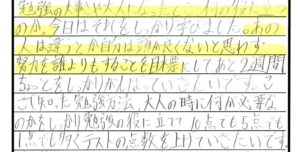 勉強の大事や大人になったとき何の役に立つ
のか。今日はそれをしっかり学びました。あの
人は違うとか自分は頭が良くないと思わず
努力を誰よりもすることを目標にしてあと2週間
ちょっとをしっかりがんばっていきたいです。こ
こで知った勉強方法、大人の時に何が必要な
のかをしっかり勉強の役に立てて10点でも5点でも
1点でも多くテストの点数を上げていきたいです。